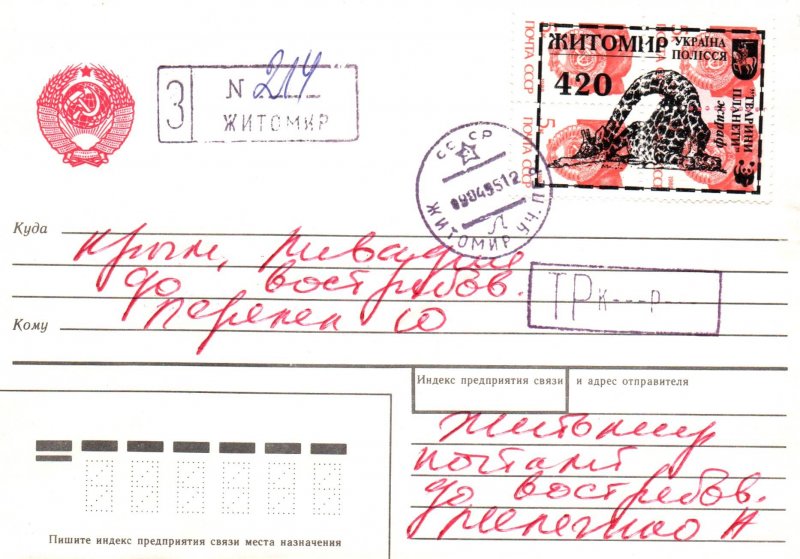 ЖИТОМИР УКРАЇНА
ПОЛІССЯ
420
"ТВАРИНИ
ПЛАНЕТИ"
жираф
ПОЧТА СССР
ПОЧТА СССР
З
N 214
ЖИТОМИР
СССР
09049512
Л
ЖИТОМИР УЧ. П
Куда
Крым, Ливадия
до востребов.
Кому
Ю
ТР К---Р-
Индекс предприятия связи и адрес отправителя
Житомир
почтамт
до востребов.
Пишите индекс предприятия связи места назначения